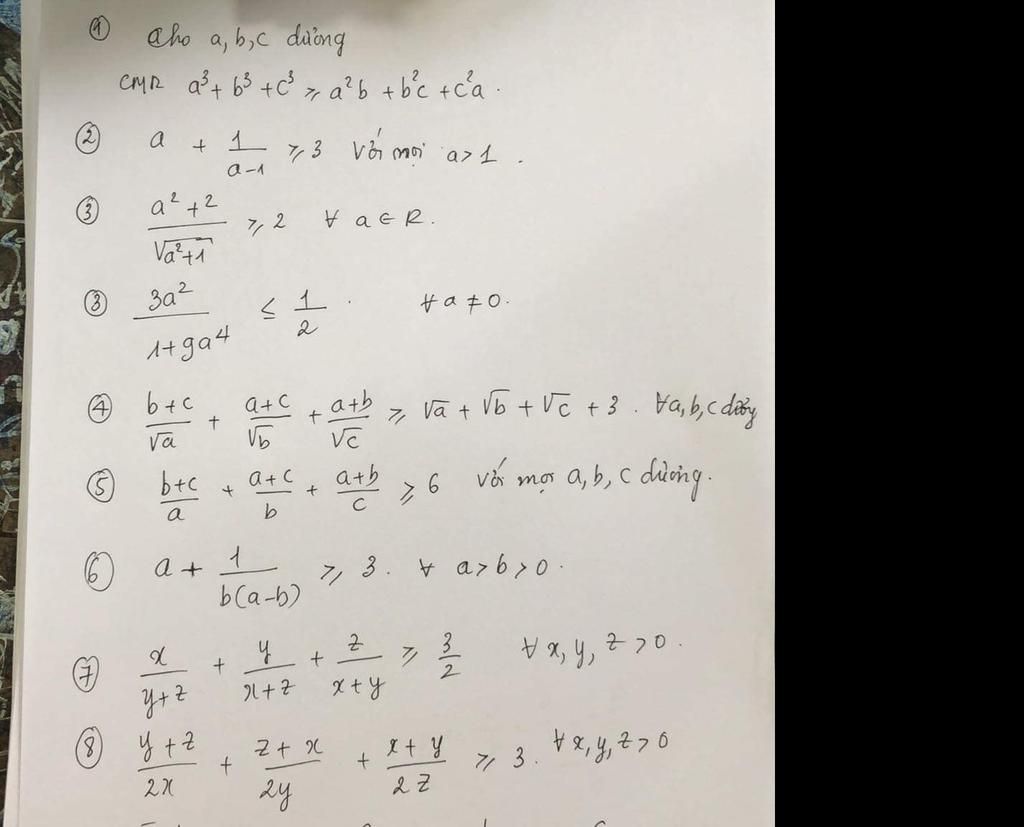 ① Cho a, b, c dương
CMR a³ + b³ + c³ ⩾ a²b + b²c + c²a.
② a + 1/(a-1) ⩾ 3 Với mọi a > 1.
③ (a² + 2)/√(a²+1) ⩾ 2 ∀ a ∈ R.
③ 3a²/(1+9a⁴) ≤ 1/2. ∀ a ≠ 0.
④ (b+c)/√a + (a+c)/√b + (a+b)/√c ⩾ √a + √b + √c + 3. ∀ a, b, c dương
⑤ (b+c)/a + (a+c)/b + (a+b)/c ⩾ 6 với mọi a, b, c dương.
⑥ a + 1/(b(a-b)) ⩾ 3. ∀ a > b > 0.
⑦ x/(y+z) + y/(x+z) + z/(x+y) ⩾ 3/2 ∀ x, y, z > 0.
⑧ (y+z)/(2x) + (z+x)/(2y) + (x+y)/(2z) ⩾ 3. ∀ x, y, z > 0